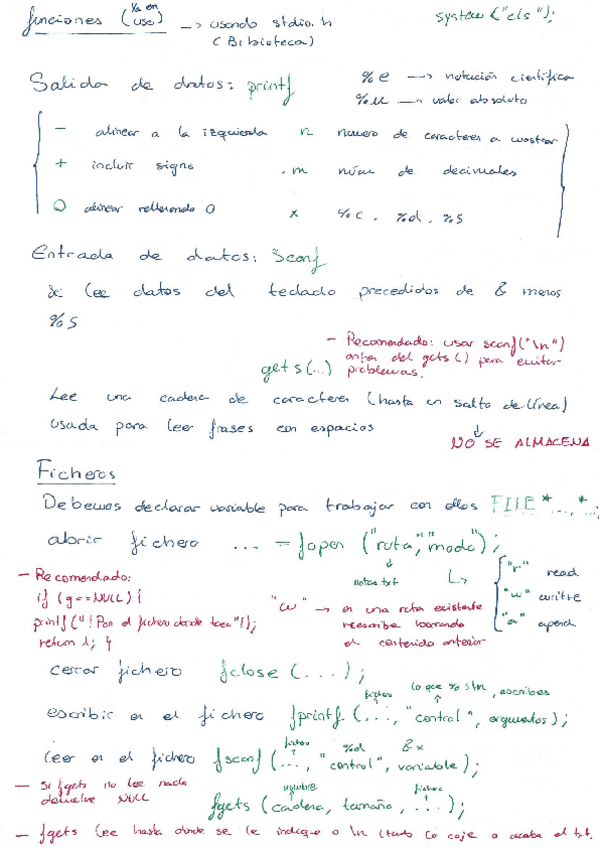 funciones (ya en uso) -> usando stdio.h
(Biblioteca)
system ("cls");
Salida de datos: printf
%e -> notación científica
%u -> valor absoluto
- alinear a la izquierda
n numero de caracteres a mostrar
+ incluir signo
.m núm de decimales
0 alinear rellenando 0
x %c, %d, %s
Entrada de datos: Scanf
* Lee datos del teclado precedidos de & menos
%s
- Recomendado: usar scanf("\n")
antes del gets() para evitar
problemas.
gets(...)
Lee una cadena de caracteres (hasta un salto de línea)
usada para leer frases con espacios
NO SE ALMACENA
Ficheros
Debemos declarar variable para trabajar con ellos FILE *...,*...;
abrir fichero ... = fopen ("ruta","modo");
notas.txt
"r" read
"w" writre
"a" apend
- Recomendado:
if (g==NULL) {
printf("!Pon el fichero donde toca"!);
return 1; }
"w" -> en una ruta existente
reescribe borrando
el contenido anterior
cerrar fichero fclose (...);
fichero lo que %s\n, escribes
escribir en el fichero fprintf (..., "control", argumentos);
fichero %d &x
leer en el fichero fscanf (..., "control", variable);
- Si fgets no lee nada
devuelve NULL
nombre fichero
fgets (cadena, tamaño, ...);
- fgets lee hasta donde se le indique o \n (tmb lo coje o acaba el txt.